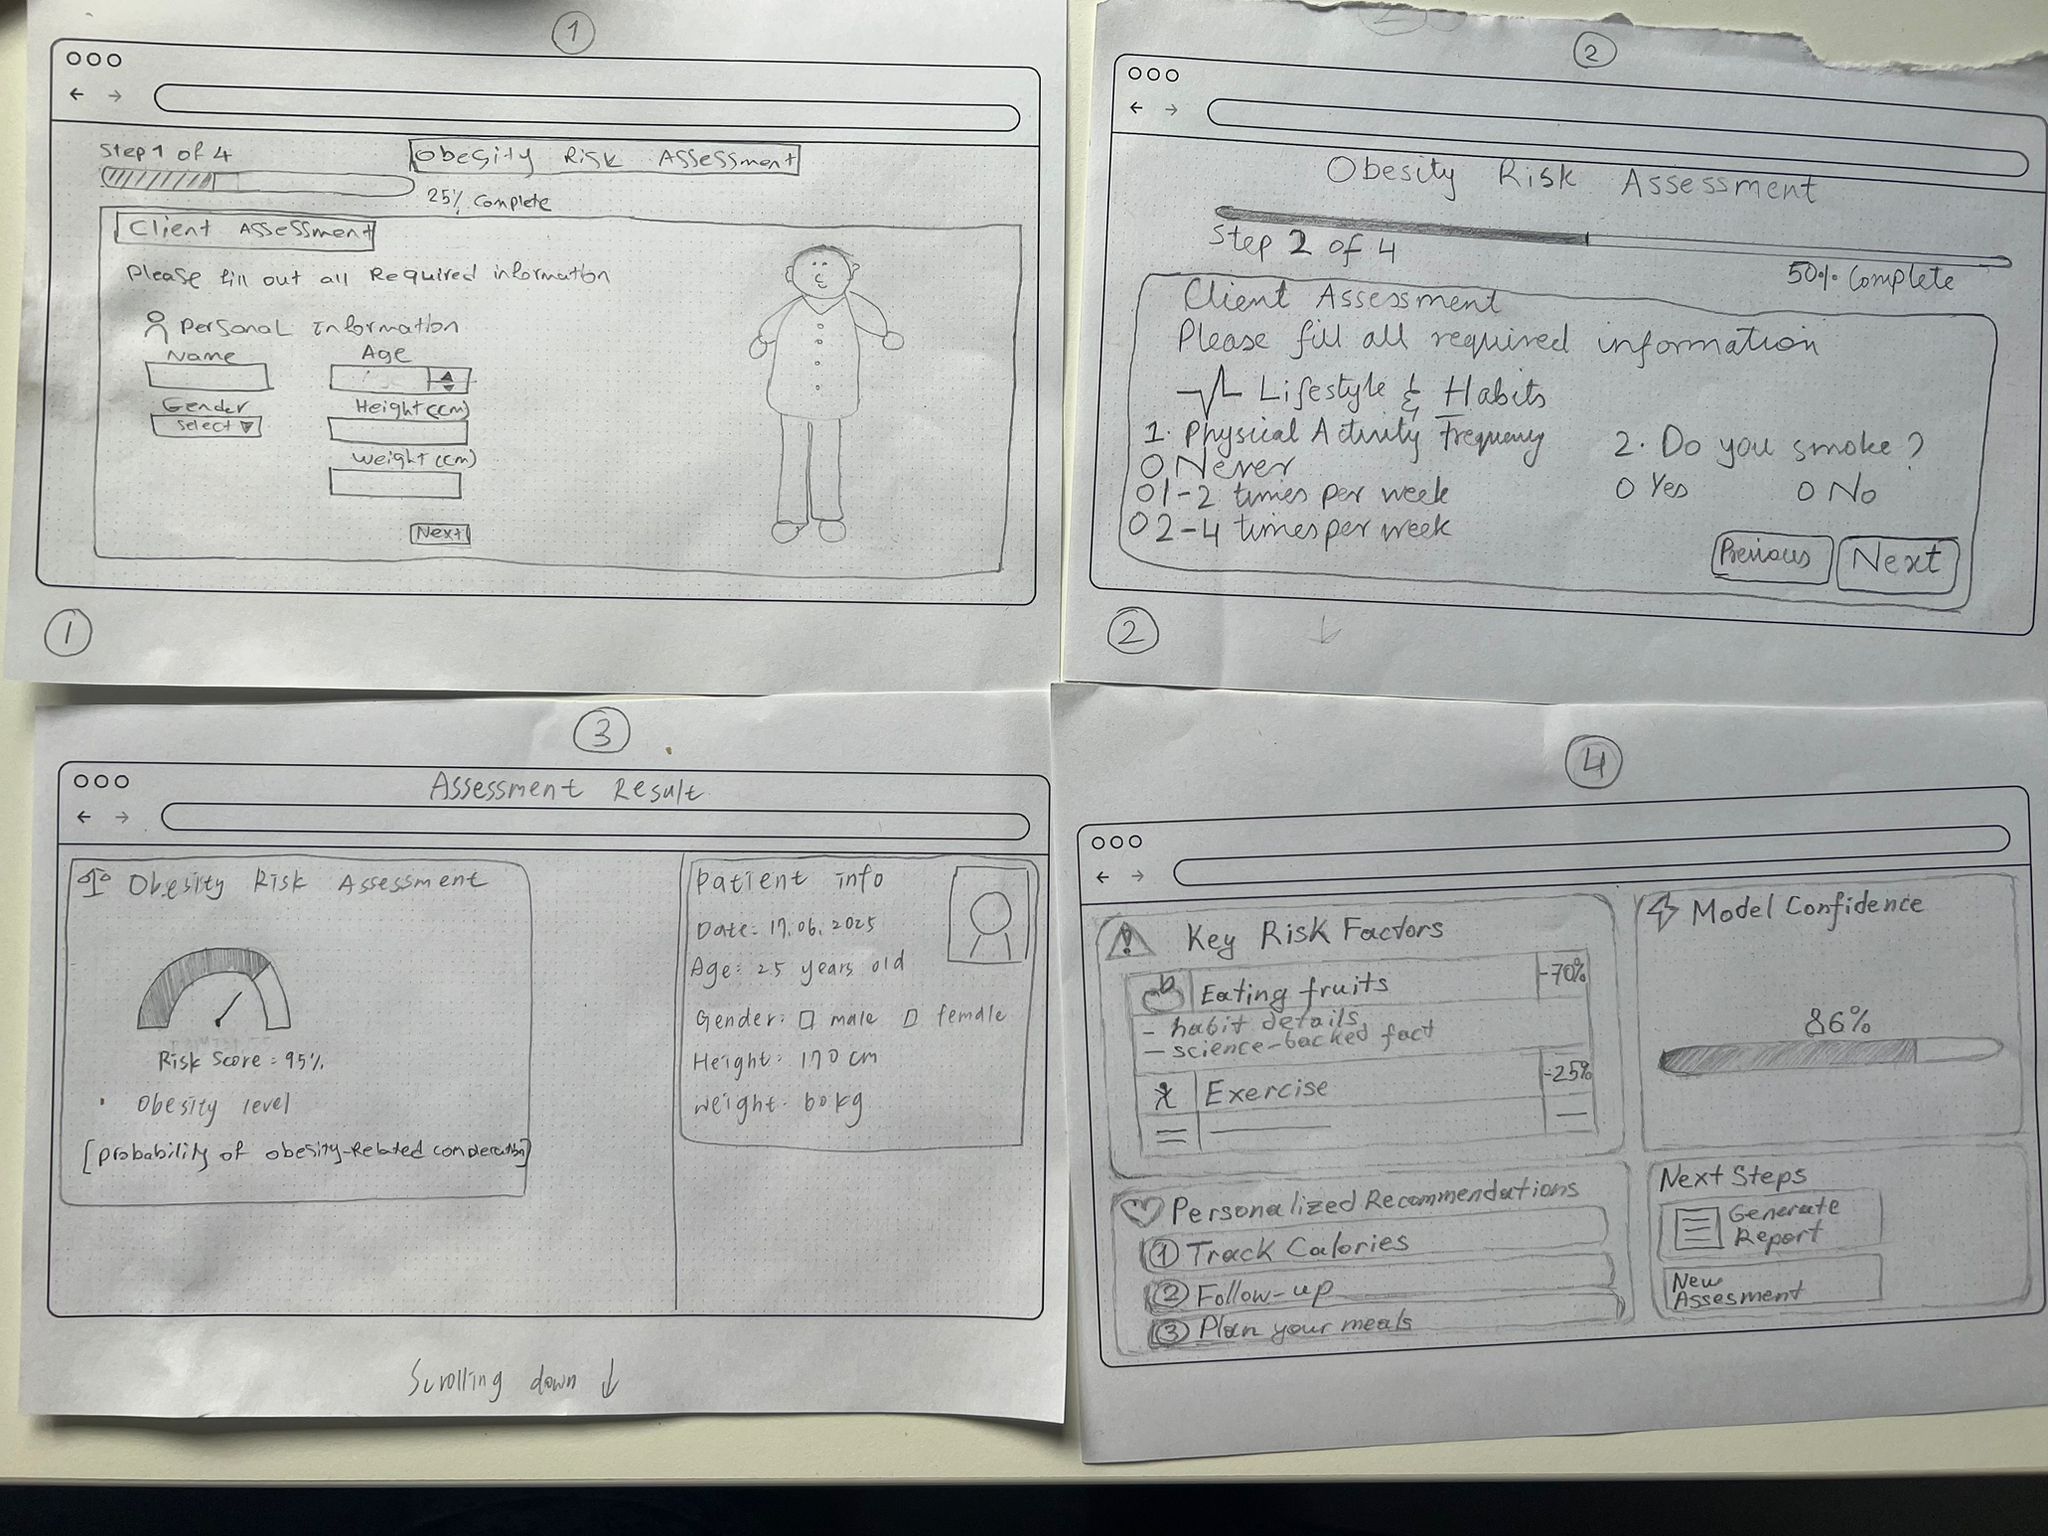 1
Step 1 of 4
Obesity Risk Assessment
25% Complete
Client Assessment
Please fill out all Required information
Personal Information
Name
Age
Gender
Select
Height (cm)
Weight (cm)
Next
1
2
Obesity Risk Assessment
Step 2 of 4
50% Complete
Client Assessment
Please fill all required information
Lifestyle & Habits
1. Physical Activity Frequency
Never
1-2 times per week
2-4 times per week
2. Do you smoke?
Yes No
Previous Next
2
3
Assessment Result
Obesity Risk Assessment
Risk Score = 95%
Obesity level
[probability of obesity-Related
Patient info
Date: 17.06.2025
Age: 25 years old
Gender: male female
Height: 170 cm
weight: 60 kg
Scrolling down ↓
4
Key Risk Factors
Eating fruits -70%
- habit details
- science-backed fact
Exercise -25%
Model Confidence
86%
Personalized Recommendations
1 Track Calories
2 Follow-up
3 Plan your meals
Next Steps
Generate
Report
New
Assesment